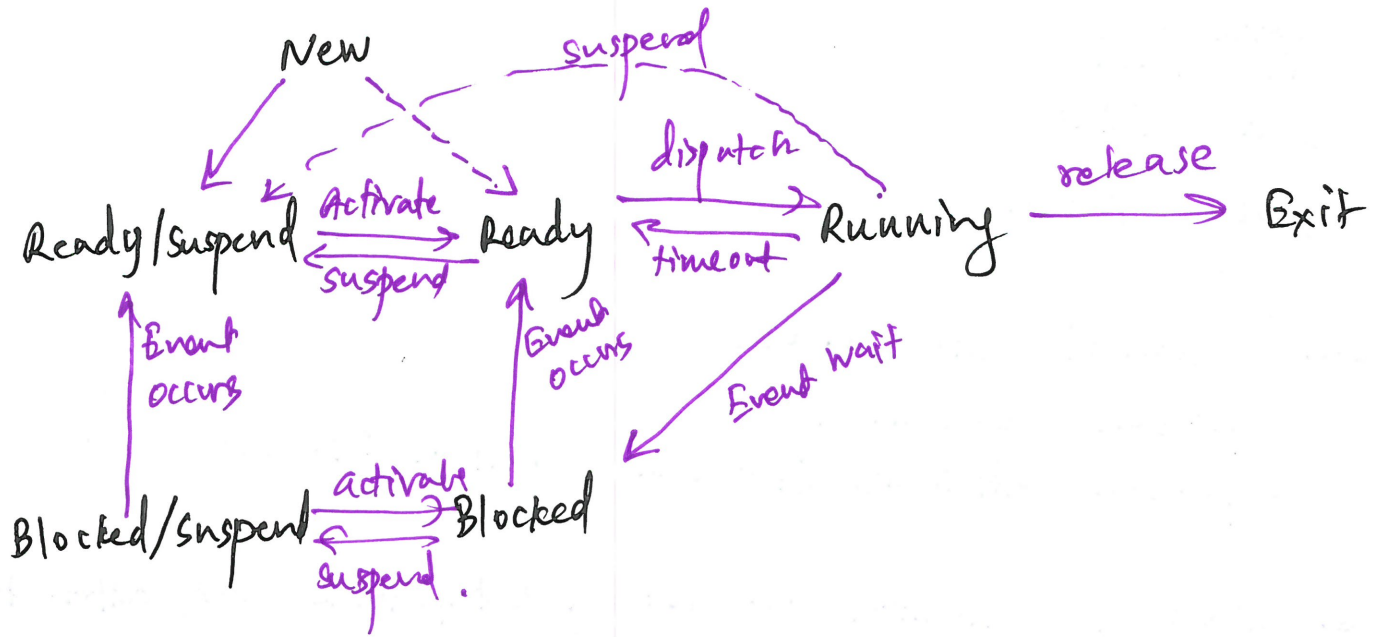 New
suspend
dispatch
release
Ready/suspend
Activate
suspend
Ready
timeout
Running
Exit
Event
occurs
Event
occurs
Event wait
Blocked/suspend
activate
suspend.
Blocked